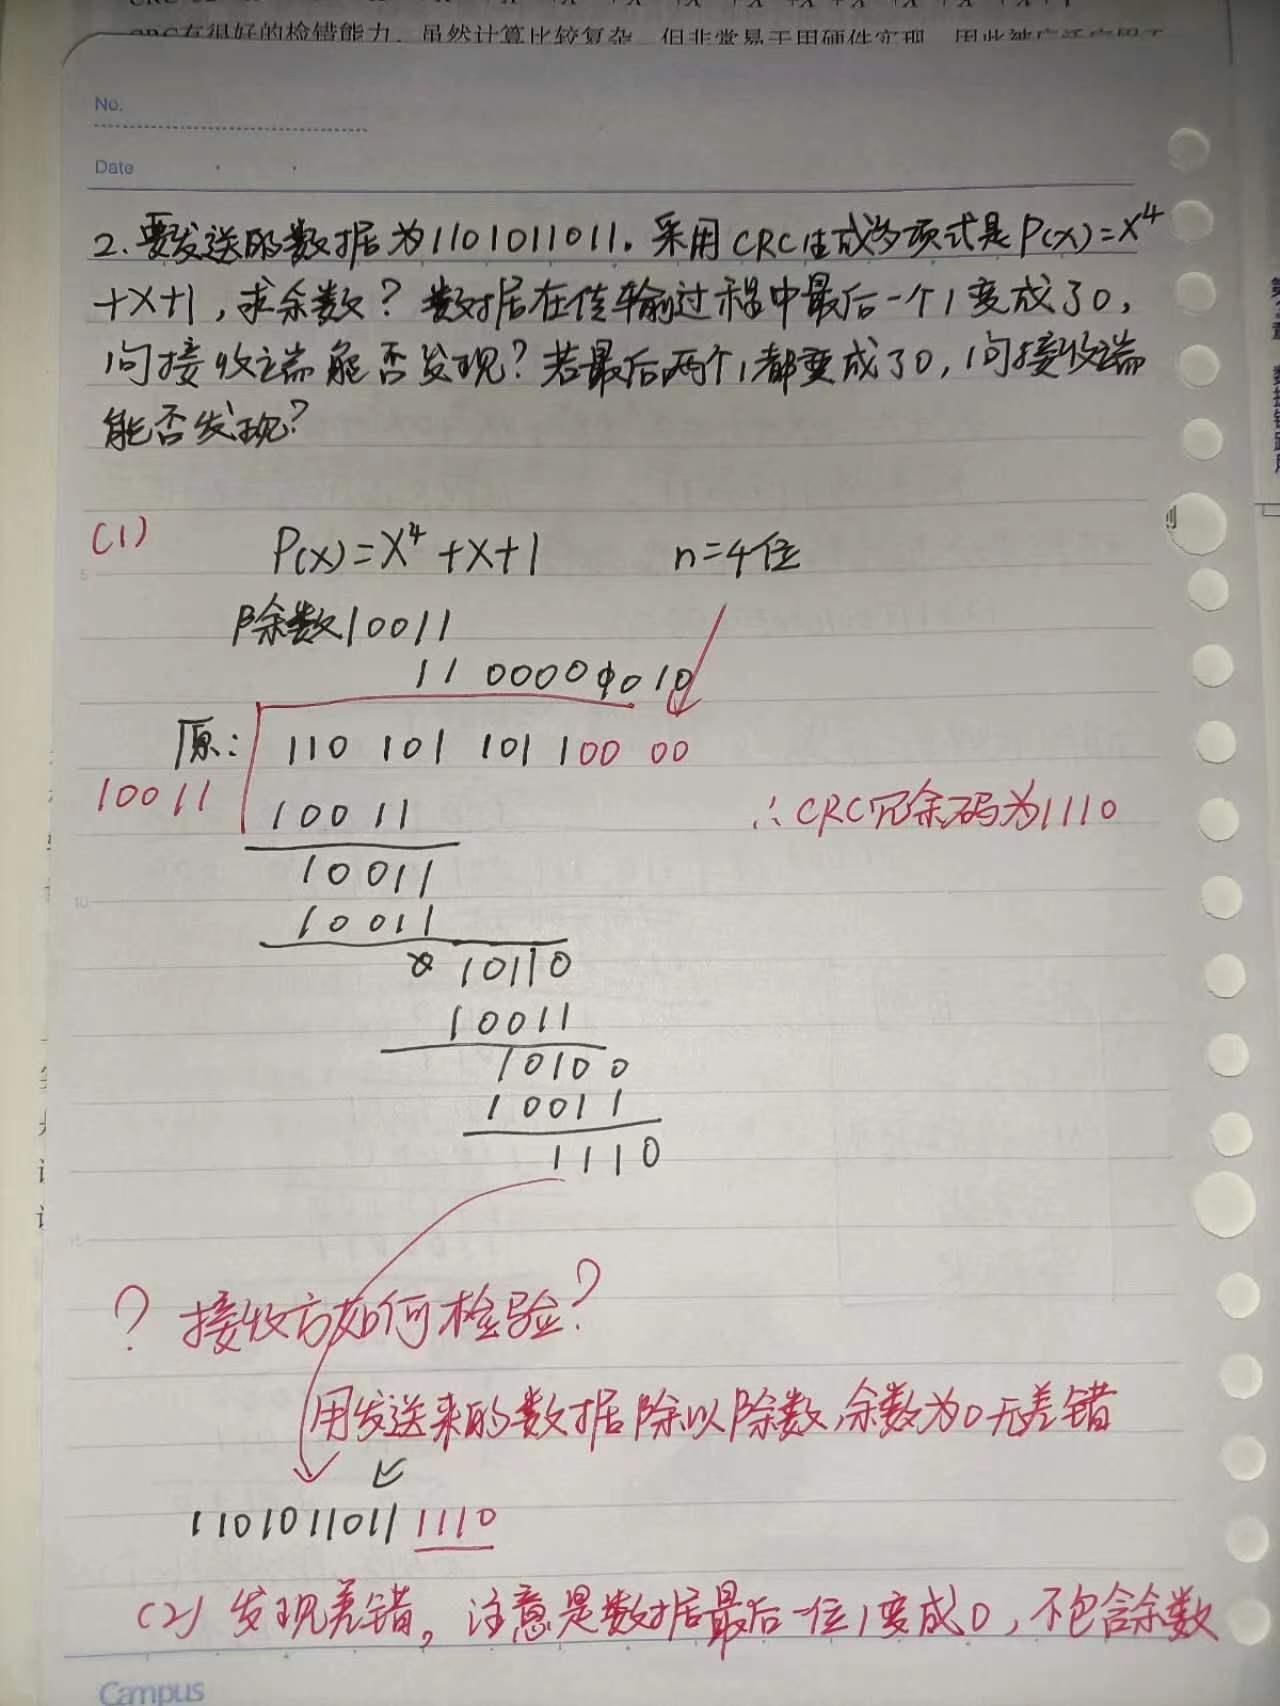 CRC有很好的检错能力，虽然计算比较复杂，但非常易于用硬件实现，因此被广泛应用于
No.
Date
2.要发送的数据为1101011011。采用CRC生成多项式是P(x)=X⁴
+X+1,求余数?数据在传输过程中最后一个1变成了0,
问接收端能否发现?若最后两个1都变成了0,问接收端
能否发现?
(1) P(x)=X⁴+X+1 n=4位
除数10011
11 0000 0 10
原: 110 101 101 100 00
10011
10011
∴CRC冗余码为1110
10011
10011
10110
10011
10100
10011
1110
? 接收方如何检验?
用发送来的数据除以除数,余数为0无差错
1101011011 1110
(2) 发现差错, 注意是数据最后一位1变成0,不包含余数
Campus